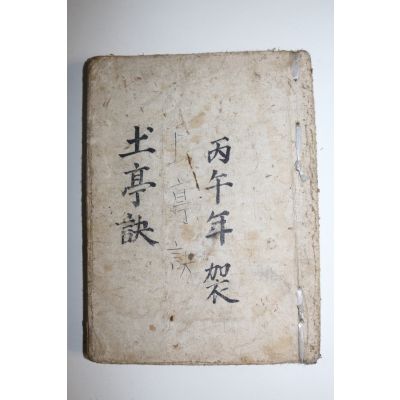 丙午年 袈
土亭訣
圡亭訣